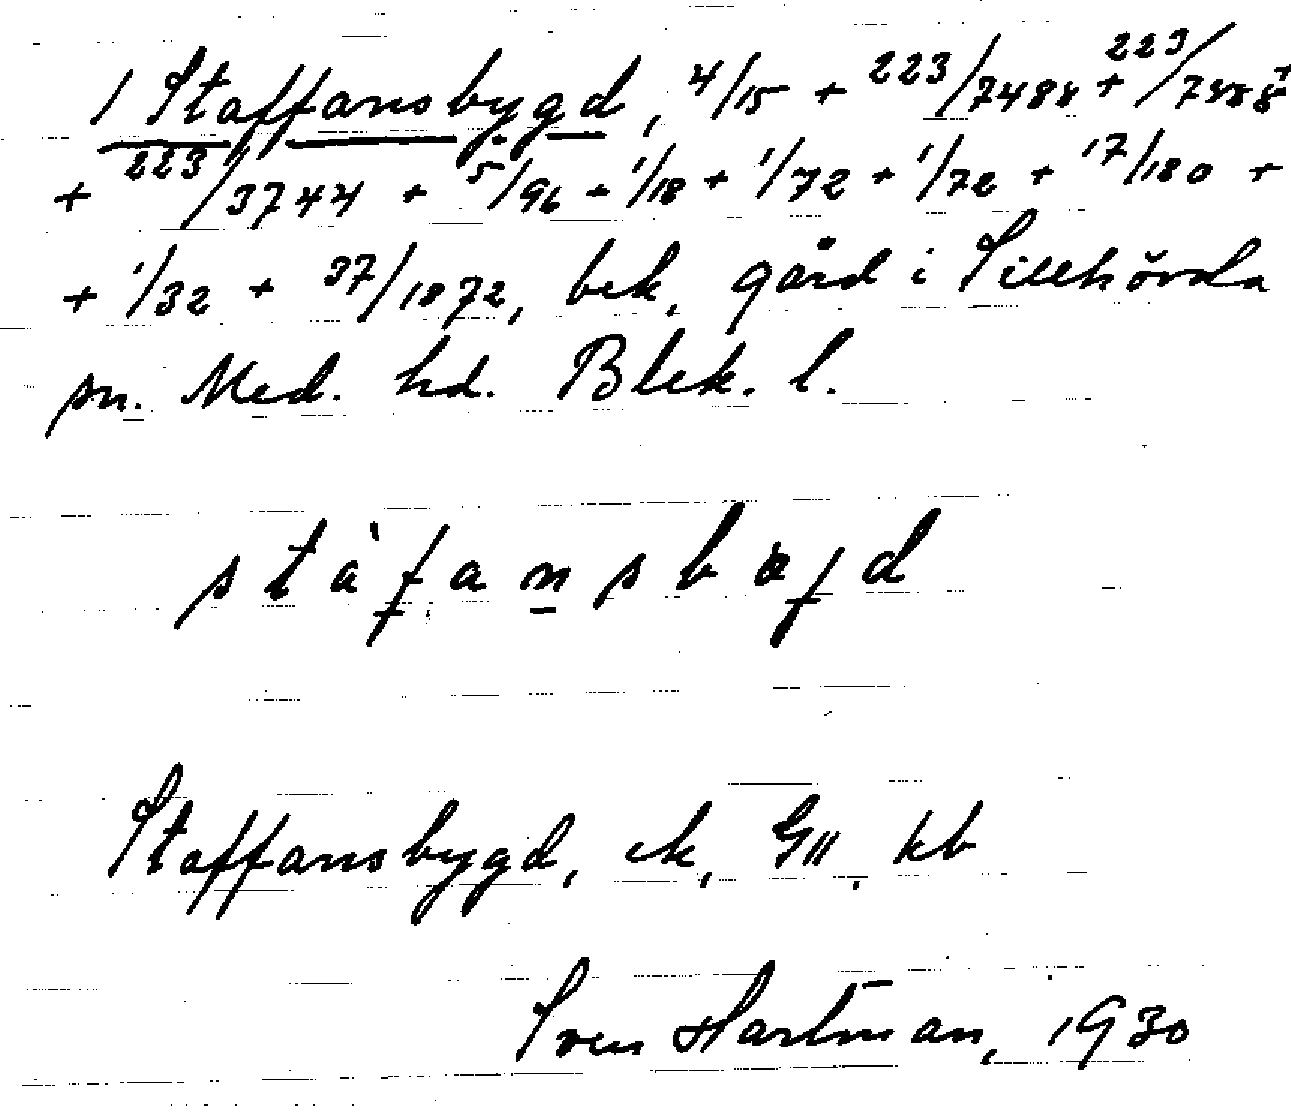 1 Staffansbygd, 4/15 + 223/7488 + 223/7488 +
+ 223/3744 + 5/96 + 1/18 + 1/72 + 1/72 + 17/180 +
+ 1/32 + 37/1872, bek. gård i Sillhövda
sn. Med. hd. Blek. l.
stàfansbøjd
Staffansbygd, ek, GII, kb
Sven Hartman, 1930